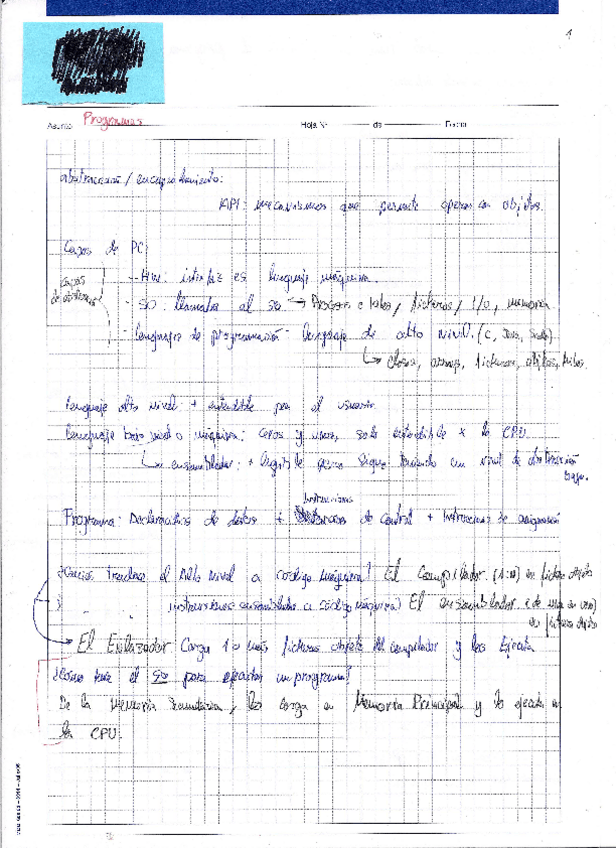 1
Asunto Programas Hoja Nº de Fecha
abstracción / encapsulamiento:
API: mecanismos que permite operar con objetos.
Capas de PC:
capas de abstracc
- HW: interfaz es lenguaje máquina.
- SO: llamadas al so → Procesos e hilos / ficheros / I/O, memoria
- Lenguajes de programación - lenguaje de alto nivel. (C, Java,
↳ clases, arrays, ficheros, objetos, hilos.
Lenguaje alto nivel: + entendible por el usuario
Lenguaje bajo nivel o máquina: ceros y unos, solo entendible x la CPU
↳ ensamblador: + legible pero sigue teniendo un nivel de abstracción bajo.
Instrucciones
Programa: Declaraciones de datos + de control + Instrucciones de asignación
¿Quién traduce el Alto nivel a código máquina? El Compilador. en fichero objeto
" " instrucciones ensamblador a código máquina? El ensamblador (de una en una) en fichero objeto
→ El Enlazador Carga 1 o más ficheros objeto del compilador y los Ejecuta
¿Cómo hace el SO para ejecutar un programa?
De la Memoria Secundaria, lo carga en Memoria Principal y lo ejecuta en
la CPU.